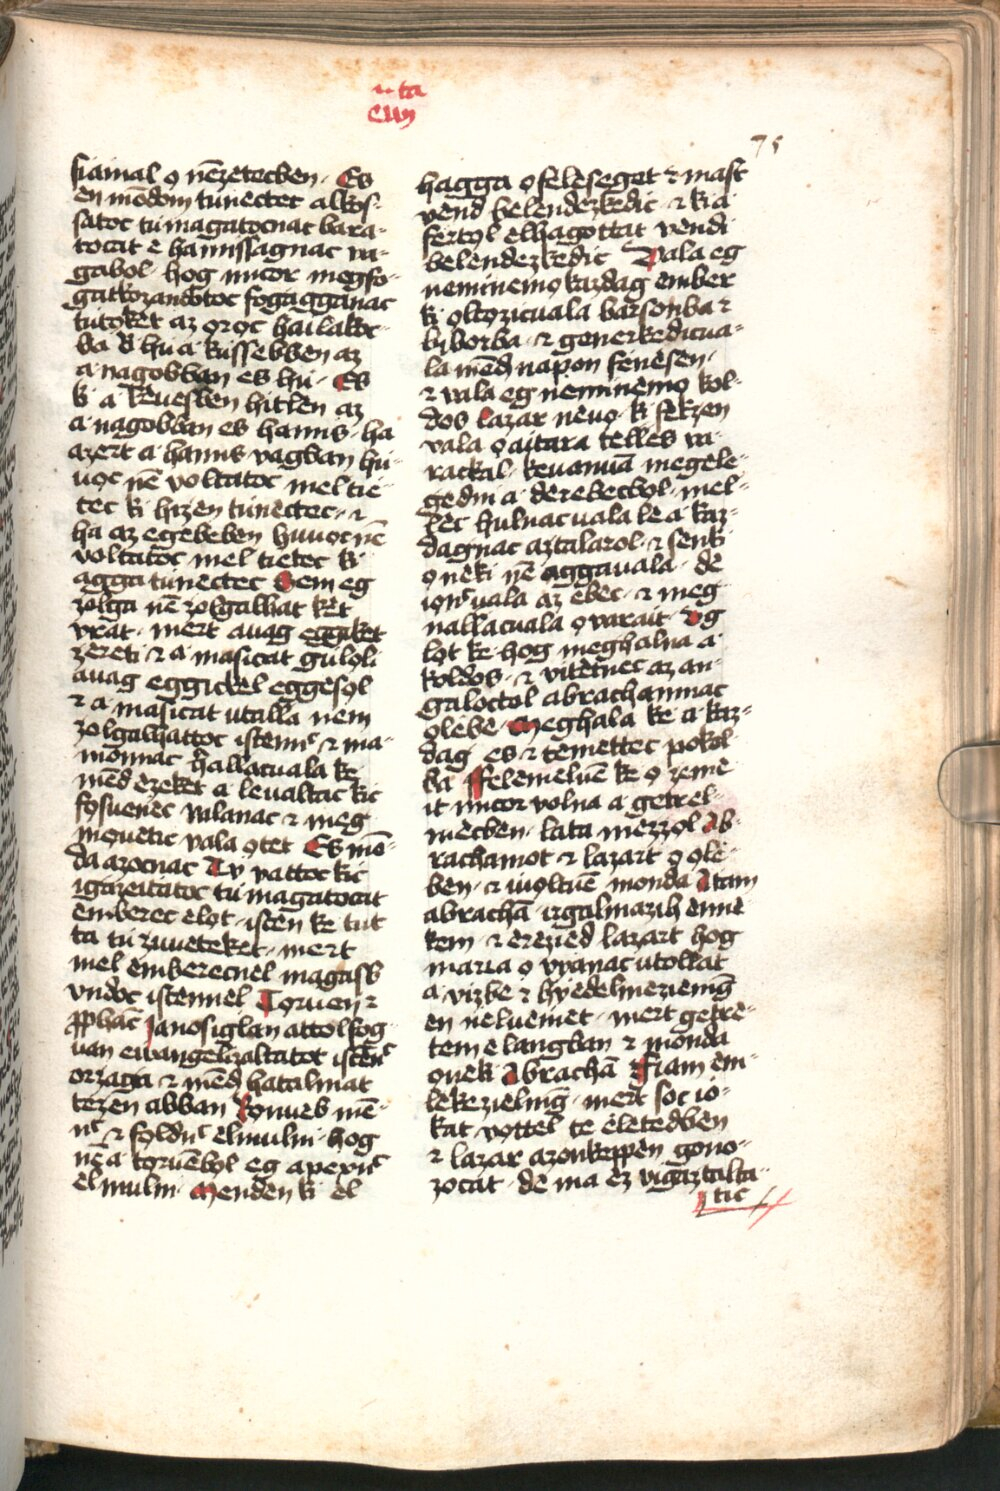 ta
cum
75
fiainal o nēzetecben · Es
en mōdom tunectec alkos-
satoc tumagatocnac bara-
tocat e hamissagnac va-
gabol · hog micor megfo-
gatkozandotoc fogagganac
tutoket az oroc hailakoc-
ba D hu a kussebben az
a nagobban es hu · Es
ki a keuesben hitlen az
a nagobban es hamis · ha
azert a hamis vagban hu-
uoc nē voltatoc mel tie-
tec ki hizen tunectec · ⁊
ha az egebeben huuoc nē
voltatoc mel tietec ki
agga tunectec Sem eg
zolga nē zolgalhat ket
vrat · mert auag eggiket
zereti ⁊ a masicat guloli
auag eggickel eggesol
⁊ a masicat utalla nem
zolgalhattoc istenn̄c ⁊ ma-
monnac hallacuala ke
mēd ezeket a leualtac kic
fosuenec valanac ⁊ meg
moueuetic vala otet Es mō-
da azocnac Tv vattoc kic
igazeitatoc tu magatocat
emberec elot · isten ke tut
ta tu zuueteket · mert
mel emberecnel magass
vndoc istennel Toruen ⁊
pphac Ianosiglan attolfog
uan ewangelizaltatot istenc
orzaga ⁊ mēd hatalmat
tezen abban Konueb mē-
nc ⁊ foldnc elmulni · hog
nē a toruēbol eg apexnc
elmulni · Menden ki el
hagga o feleseget ⁊ mast
vend belendezkedic · ⁊ ki a
fertol elhagottat vendi
belendezkedic Vala eg
neminemo kazdag ember
ki oltozicuala barsonba ⁊
biborba · ⁊ generkedicua-
la mēd napon fenesen ·
⁊ vala eg neminemo kol-
dos Lazar neuo · ki fekzen
vala o aitara telles va-
rackal · keuanuā megele-
gedni a derebecbol · mel-
lec hulnacuala le a kaz-
dagnac aztalarol · ⁊ senki
oneki nē aggauala · de
ionc uala az ebec · ⁊ meg
nallacuala o varait · Vg
lot ke hog meghalna a
koldos · ⁊ vitetnec az an-
galoctol abrachamnac
olebe · Meghala ke a kaz-
dag es ⁊ temettec pokol
ba Felemeluē ke o zeme
it micor volna a getrel-
mecben · lata mezzol Ab-
rachamot ⁊ lazart o ole-
ben · ⁊ iuoltuē monda Atam
abrachā irgalmazih enne
kem · ⁊ erezied lazart hog
maria o vyanac utollat
a vizbe ⁊ hyedelmeziemg
en neluemet · mert getre-
tem e langban ⁊ monda
onek Abrachā Fiam em-
lekezielmg · mert soc io-
kat vottel te eletedben
⁊ lazar azonkeppen gono-
zocat · de ma ez vigaztalta-
tic